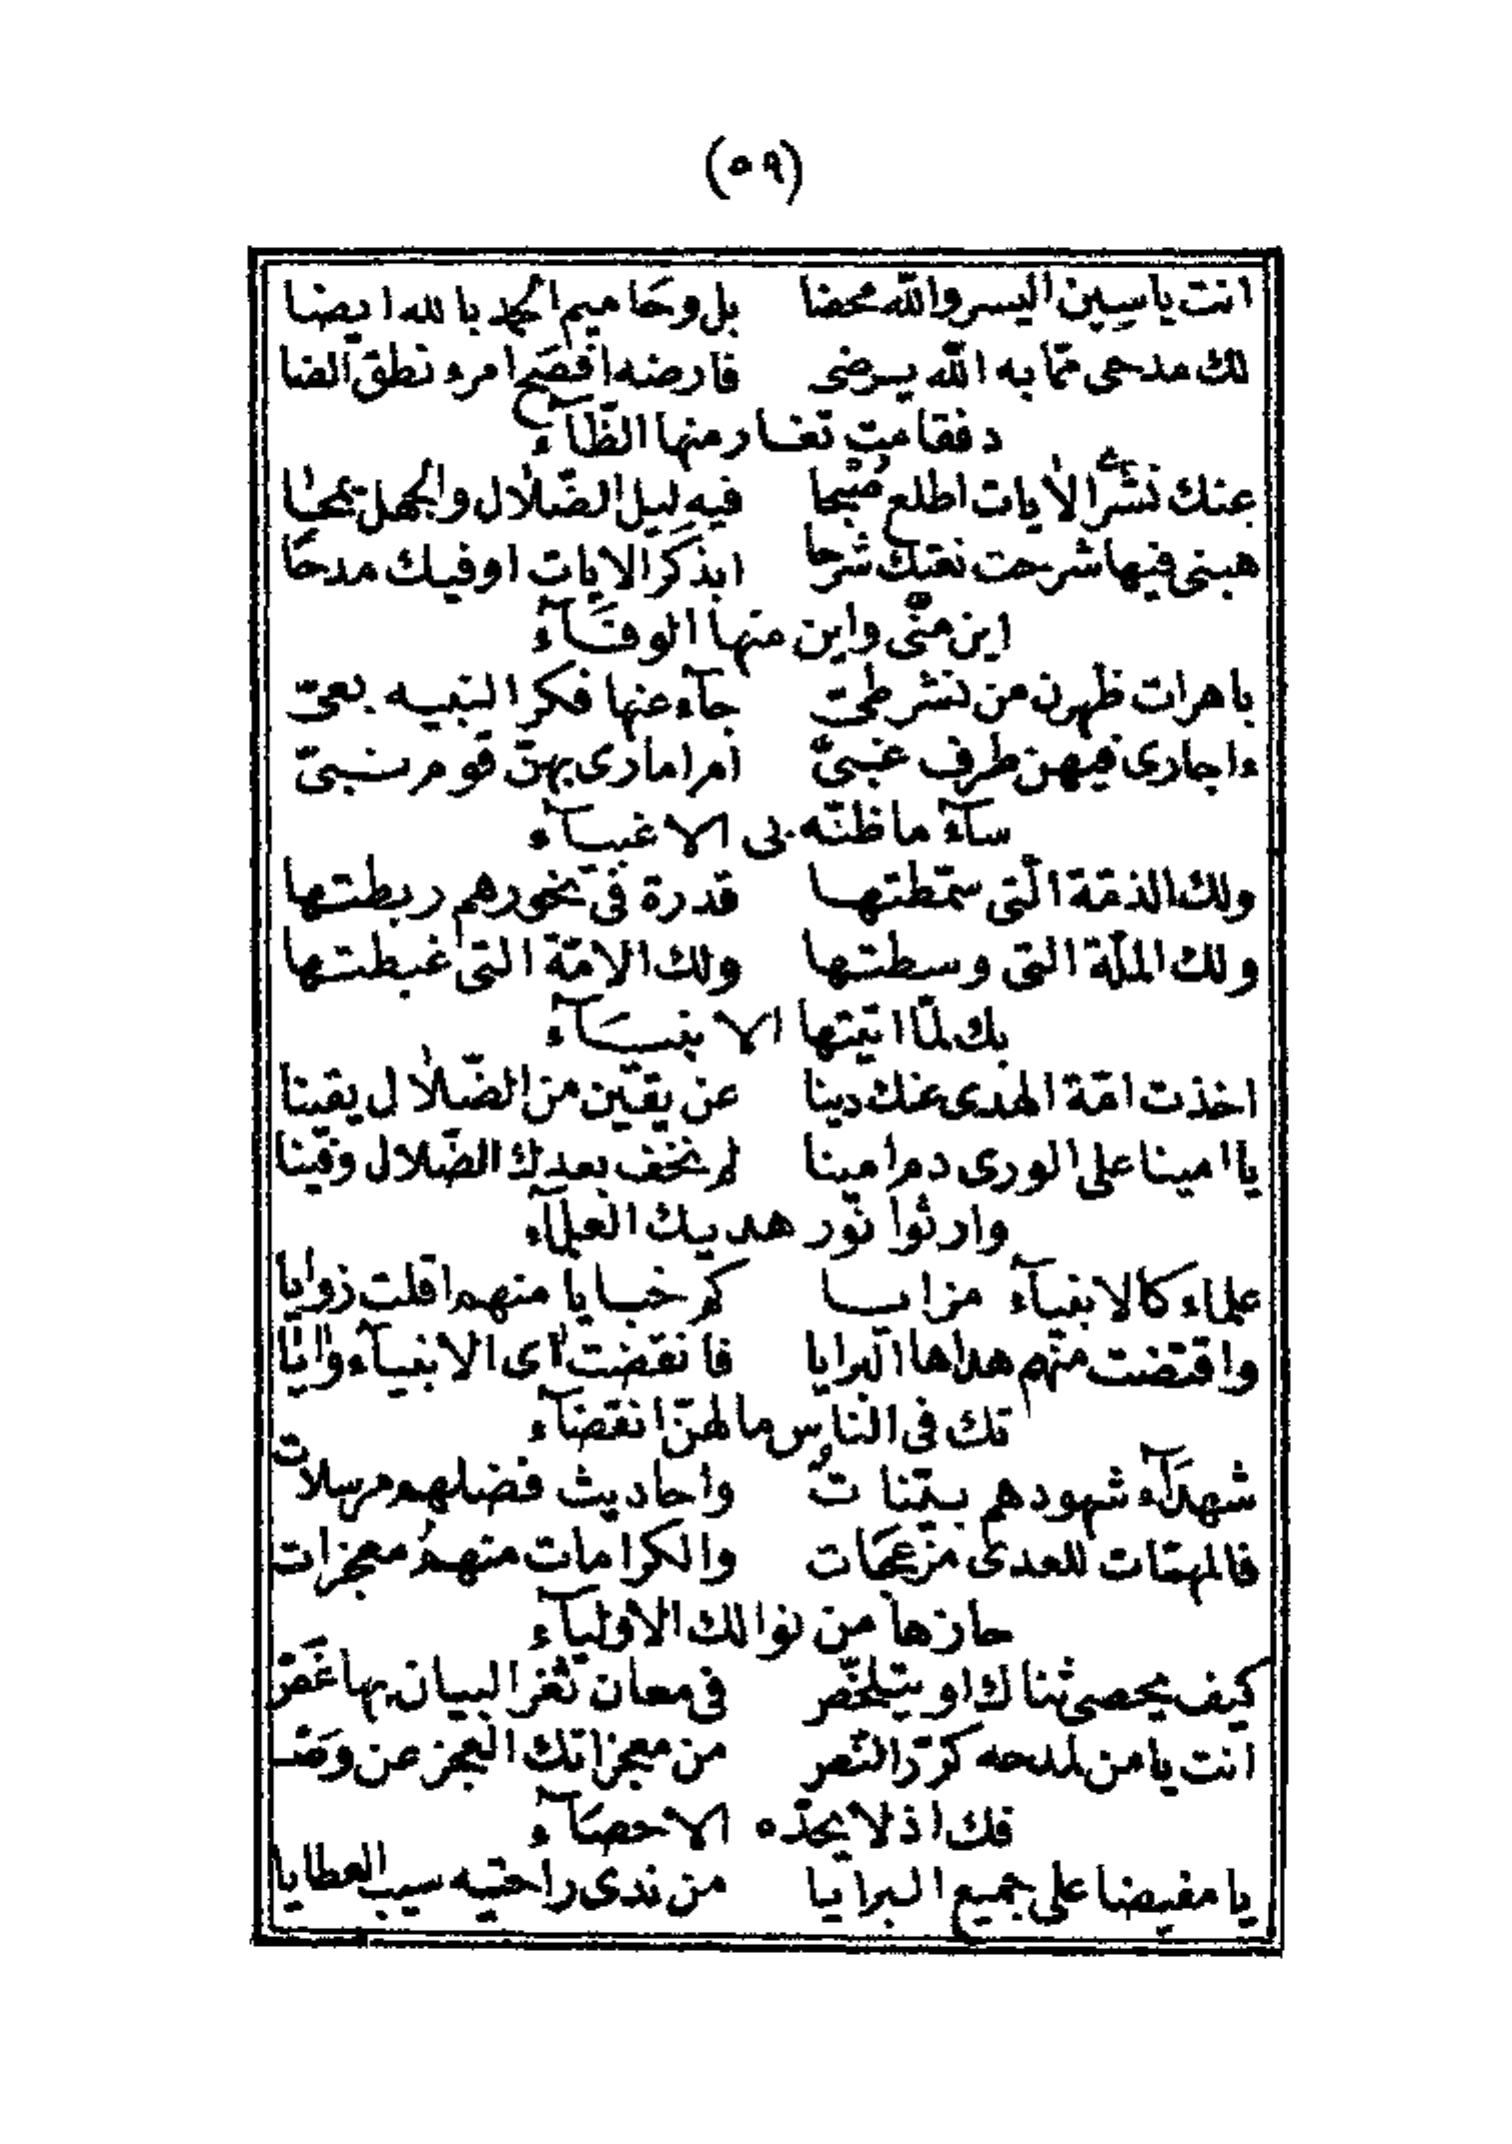 (٥٩)
انت ياسين اليسر والله محضا بل وحاميم الحمد بالله ايضا
لك مدحى ممّا به الله يرضى فارضه افصح امرء نطق الضا
د فقامت تغار منها الظّآء
عنك نشر الايات اطلع صبحا فيه ليل الضّلال والجهل يمحا
هبنى فيها شرحت نعتك شرحا ابذكر الايات اوفيك مدحا
اين منّى واين منها الوفآء
باهرات ظهرن من نشر طىّ جآء عنها فكر النبيه بعىّ
ءاجارى فيهن طرف غبىّ ام امارى بهنّ قوم نبىّ
سآء ما ظنّه بى الاغبيآء
ولك الذمّة الّتى سمّطتها قدرة فى نحورهم ربطتها
ولك الملّة التى وسطتها ولك الامّة التى غبطتها
بك لمّا اتيتها الانبيآء
اخذت امّة الهدى عنك دينا عن يقين من الضّلال يقينا
يا امينا على الورى دم امينا لم نخف بعدك الضّلال وفينا
وارثوا نور هديك العلمآء
علماء كالانبيآء مزايا كم خبايا منهم اقلت زوايا
واقتضت منهم هداها البرايا فانقضت آى الانبيآء وايا
تك فى النّاس ما لهنّ انقضآء
شهدآء شهودهم بيّنات واحاديث فضلهم مرسلات
فالمهمّات للعدى مزعجات والكرامات منهم معجزات
حازها من نوالك الاوليآء
كيف يحصى ثناك او يتلخّص فى معان ثغر البيان بها غصّ
انت يا من لمدحه كرّر النّص من معجزاتك العجز عن وصـ
فك اذ لا يحدّه الاحصآء
يا مفيضا على جميع البرايا من ندى راحتيه سيب العطايا